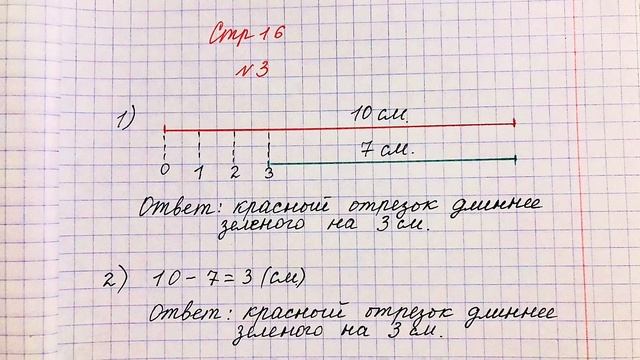 Стр 16
№ 3
1) 10 см.
7 см.
0 1 2 3
Ответ: красный отрезок длиннее
зеленого на 3 см.
2) 10 - 7 = 3 (см)
Ответ: красный отрезок длиннее
зеленого на 3 см.